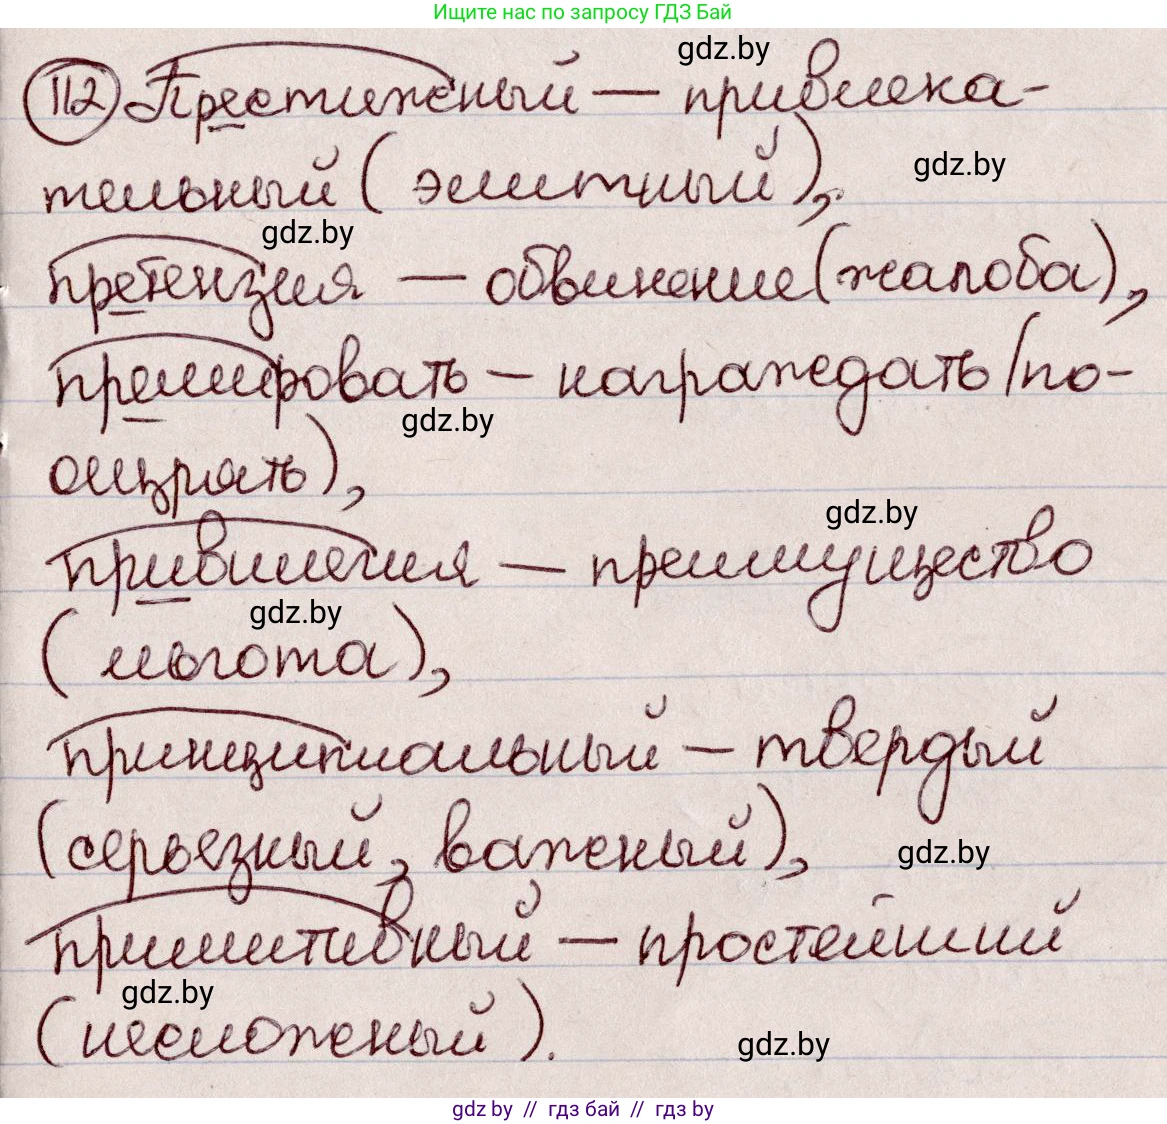 Ищите нас по запросу ГДЗ Бай
gdz.by
112 Престижный — привлека-
тельный ( элитный ),
gdz.by
gdz.by
претензия — обвинение (жалоба),
премировать — награждать (по-
gdz.by
ощрять),
gdz.by
привилегия — преимущество
gdz.by
( льгота ),
принципиальный — твердый
(серьезный, важный),
gdz.by
примитивный — простейший
gdz.by
(несложный ).
gdz.by
gdz.by // гдз бай // гдз by